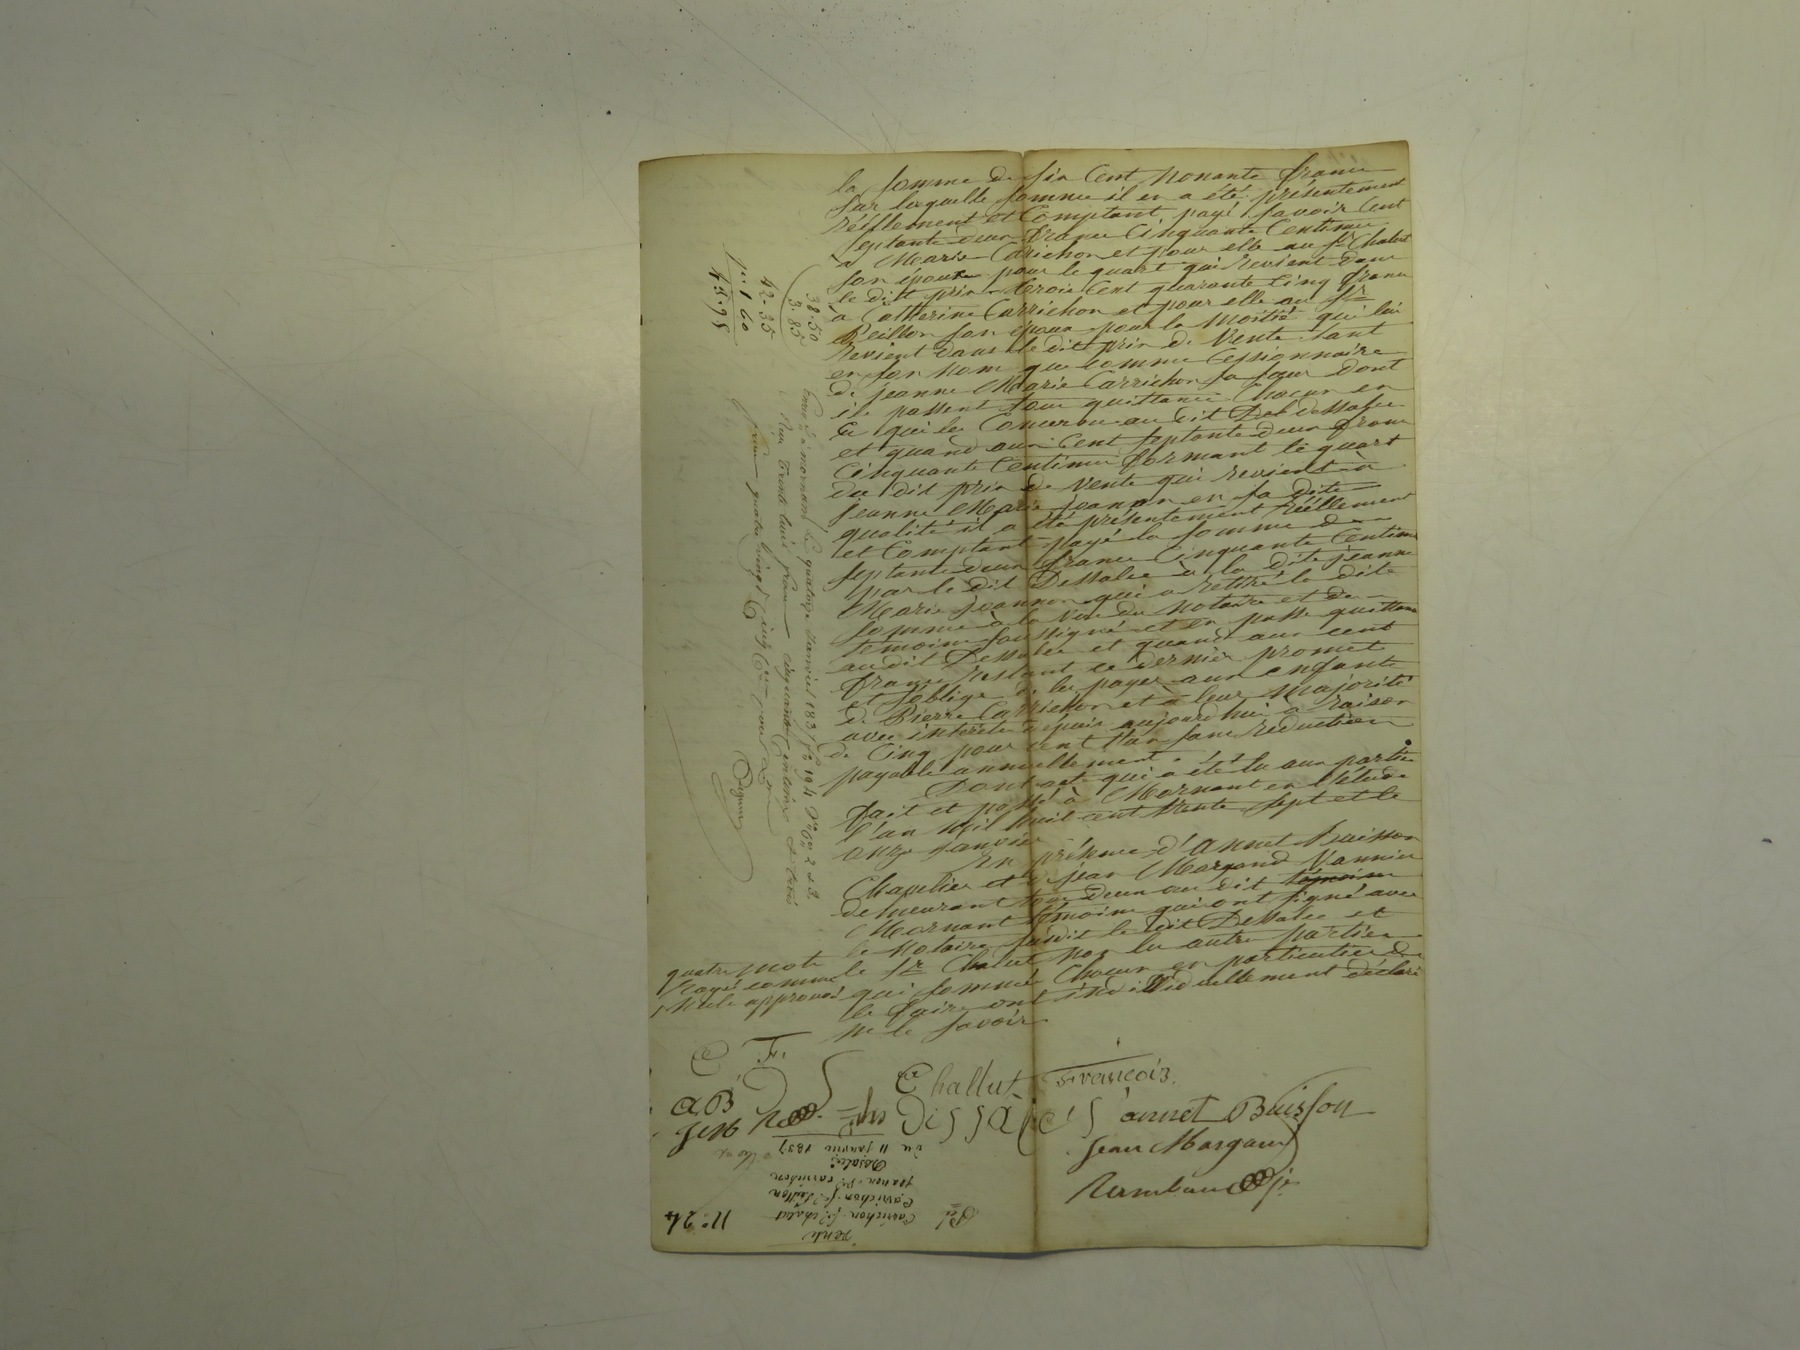 la somme de six Cent Nonante francs
sur laquelle somme il en a été présentement
réellement et Comptant payé savoir Cent
septante deux francs Cinquante Centimes
à Marie Carrichon et pour elle au Sr Chalut
son époux pour le quart qui revient dans
le dit prix trois Cent quarante Cinq francs
à Catherine Carrichon et pour elle au Sr
Peillon son époux pour la moitié qui lui
revient dans le dit prix de vente tant
en son nom que comme Cessionnaire
de jeanne Marie Carrichon sa soeur dont
ils passent tous quittance Chacun en
Ce qui les Concerne au dit Dessalce
et quand aux Cent septante deux francs
Cinquante Centimes formant le quart
du dit prix de Vente qui revient à
jeanne Marie joannon en sa dite
qualité il a été présentement réellement
et Comptant payé la somme de
septante deux francs Cinquante Centimes
par le dit Dessalce à la dite jeanne
Marie joannon qui a retiré la dite
somme à la Vue du Notaire et des
temoins soussignés et en passe quittance
audit Dessalce et quand aux cent
francs restant ce dernier promet
et s'oblige de les payer aux enfants
de Pierre Carrichon et à leur Majorité
avec intérêts depuis aujourd'hui à raison
de Cinq pour cent l'an sans reduction
payable annuellement.
Dont acte qui a été lu aux parties
fait et passé à Mornant en l'étude
l'an Mil huit cent trente sept et le
onze janvier
En présence d'Annet Buisson
Chapelier et de jean Margand Vannier
demeurant tous deux au dit témoins
Mornant témoins qui ont signé avec
le Notaire susdit le dit Dessalce et
le Sr Chalut non les autres parties
qui sommés Chacun en particulier de
le faire ont individuellement déclaré
ne le savoir
quatre mots
rayés comme
nuls approuvé
38.50
3.85
42.35
1.60
43.95
Enregé à mornant le quatorze Janvier 1837 fo 194 Vo Ces 2 et 3.
Reçu trente huit francs cinquante Centimes et trois
francs quatre vingt Cinq Ces pour
C F.
Challut François
a.B
J M
Dissalcés
annet Buisson
Jean Margand
Nº 24
Vente
Carrichon fe chalut
Carrichon fe Peillon
joanon Ve carrichon
à
Desalces
du 11 janvier 1837